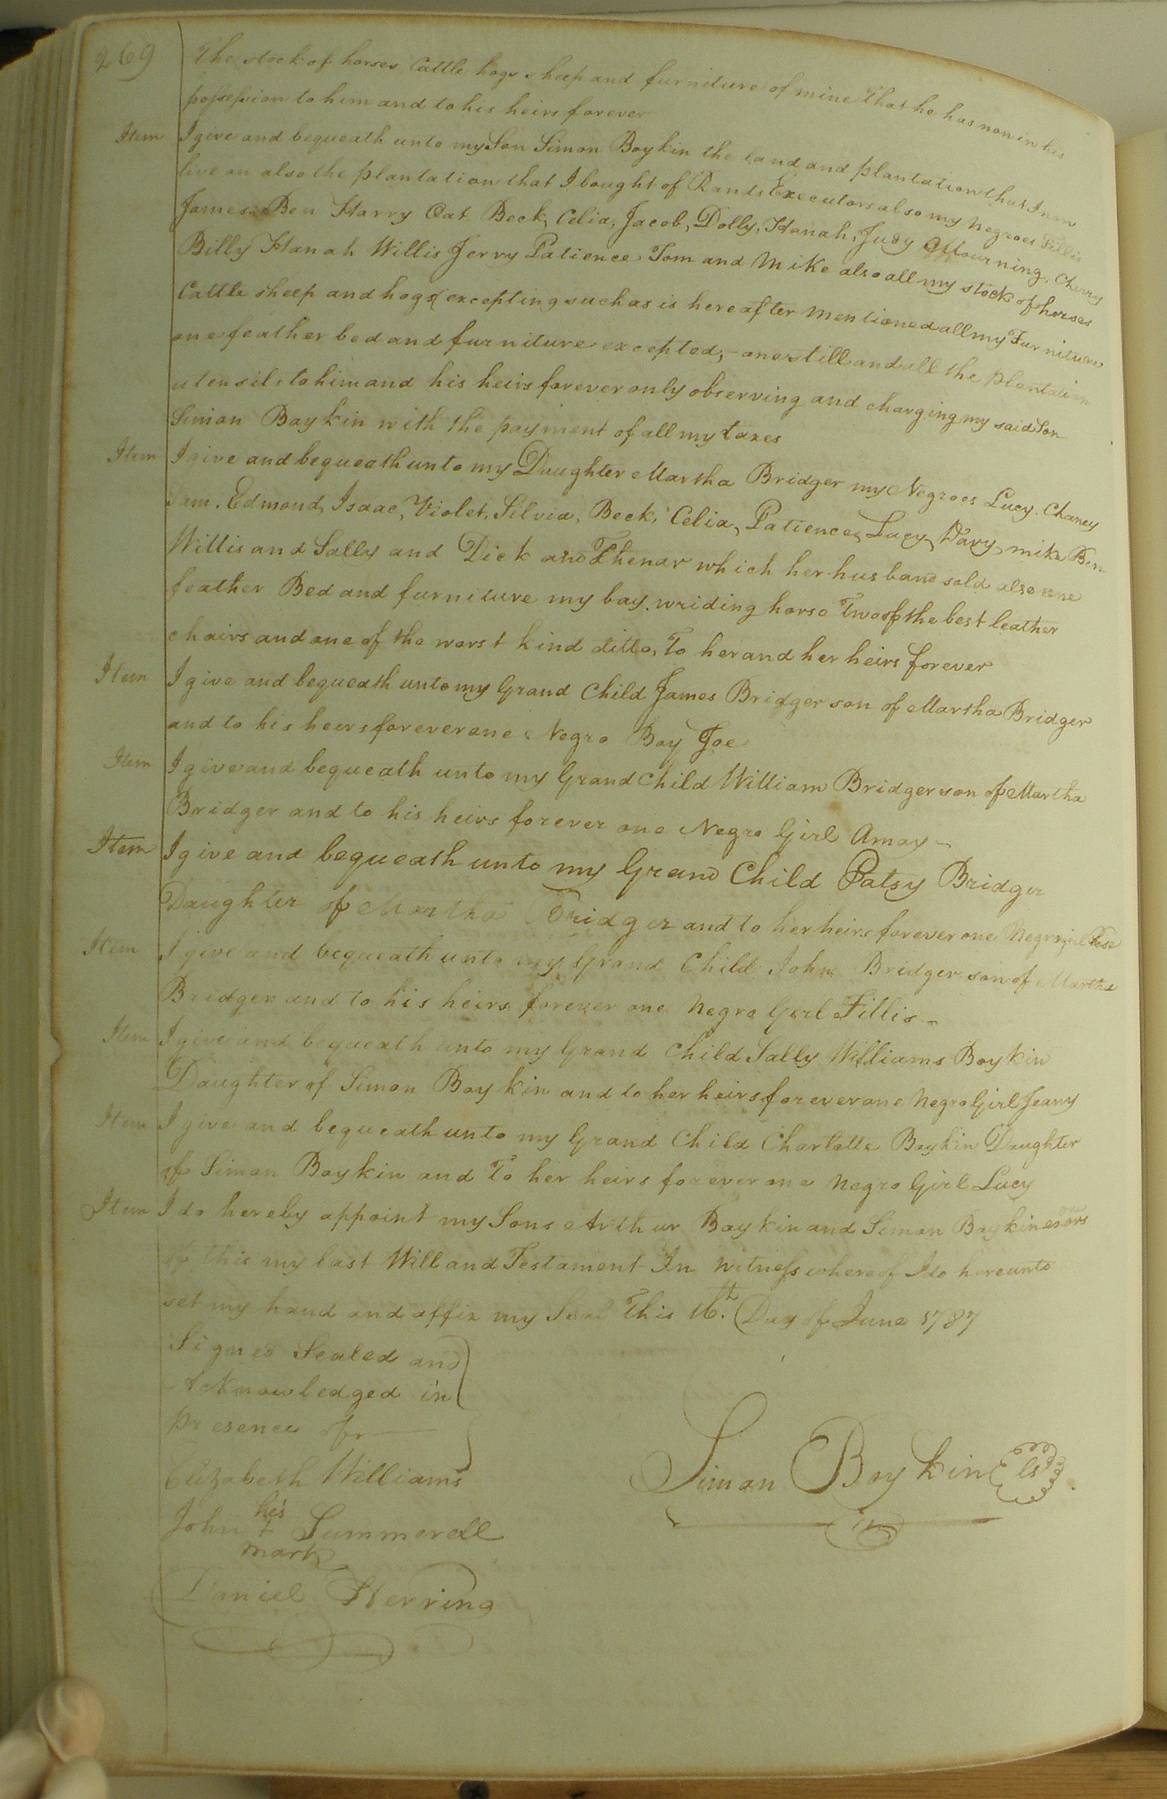 269
The stock of horses Cattle hogs sheep and furniture of mine that he has now in his
possession to him and to his heirs forever
Item I give and bequeath unto my Son Simon Boykin the land and plantation that I now
live on also the plantation that I bought of Rands Executors also my Negroes Fillis
James Ben Harry Cat Beck, Celia, Jacob, Dolly, Hanah, Judy Mourning, Cherry
Billy Hanah Willis Jerry Patience Tom and Mike also all my stock of horses
Cattle sheep and hogs (excepting such as is hereafter mentioned all my Furniture
one feather bed and furniture excepted, one still and all the plantation
utensils to him and his heirs forever only observing and charging my said Son
Simon Boykin with the payment of all my taxes
Item I give and bequeath unto my Daughter Martha Bridger my Negroes Lucy, Chaney
Sam, Edmond, Isaac, Violet, Silvia, Beck, Celia, Patience, Lucy, Davy, mike Ben
Willis and Sally and Dick and Thenar which her husband sold also one
feather Bed and furniture my bay wriding horse Two of the best leather
chairs and one of the worst kind ditto, To her and her heirs forever
Item I give and bequeath unto my Grand Child James Bridger son of Martha Bridger
and to his heirs forever one Negro Boy Joe
Item I give and bequeath unto my Grand child William Bridger son of Martha
Bridger and to his heirs forever one Negro Girl Amay
Item I give and bequeath unto my Grand Child Patsy Bridger
Daughter of Martha Bridger and to her heirs forever one Negro girl Rose
Item I give and bequeath unto my Grand Child John Bridger son of Martha
Bridger and to his heirs forever one Negro Girl Fillis
Item I give and bequeath unto my Grand Child Sally Williams Boykin
Daughter of Simon Boykin and to her heirs forever one Negro Girl Jeany
Item I give and bequeath unto my Grand Child Charlotte Boykin Daughter
of Simon Boykin and To her heirs forever one Negro Girl Lucy
Item I do hereby appoint my Sons Arthur Boykin and Simon Boykin exors
of this my last Will and Testament In witness whereof I do hereunto
set my hand and affix my Seal This 16.th Day of June 1787
Signed Sealed and
Acknowledged in
presence of
Elizabeth Williams
Simon Boykin LS
his
John + Summerell
mark
Daniel Herring